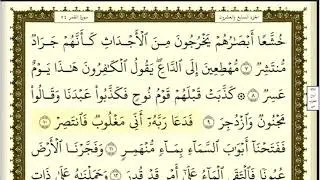 الجزء السابع والعشرون سورة القمر ٥٤
خُشَّعًا أَبْصَٰرُهُمْ يَخْرُجُونَ مِنَ ٱلْأَجْدَاثِ كَأَنَّهُمْ جَرَادٌ
مُّنتَشِرٌ ٧ مُّهْطِعِينَ إِلَى ٱلدَّاعِ يَقُولُ ٱلْكَٰفِرُونَ هَٰذَا يَوْمٌ
عَسِرٌ ٨ كَذَّبَتْ قَبْلَهُمْ قَوْمُ نُوحٍ فَكَذَّبُوا۟ عَبْدَنَا وَقَالُوا۟
مَجْنُونٌ وَٱزْدُجِرَ ٩ فَدَعَا رَبَّهُۥٓ أَنِّى مَغْلُوبٌ فَٱنتَصِرْ ١٠
فَفَتَحْنَآ أَبْوَٰبَ ٱلسَّمَآءِ بِمَآءٍ مُّنْهَمِرٍ ١١ وَفَجَّرْنَا ٱلْأَرْضَ
عُيُونًا فَٱلْتَقَى ٱلْمَآءُ عَلَىٰٓ أَمْرٍ قَدْ قُدِرَ ١٢ وَحَمَلْنَٰهُ عَلَىٰ ذَاتِ